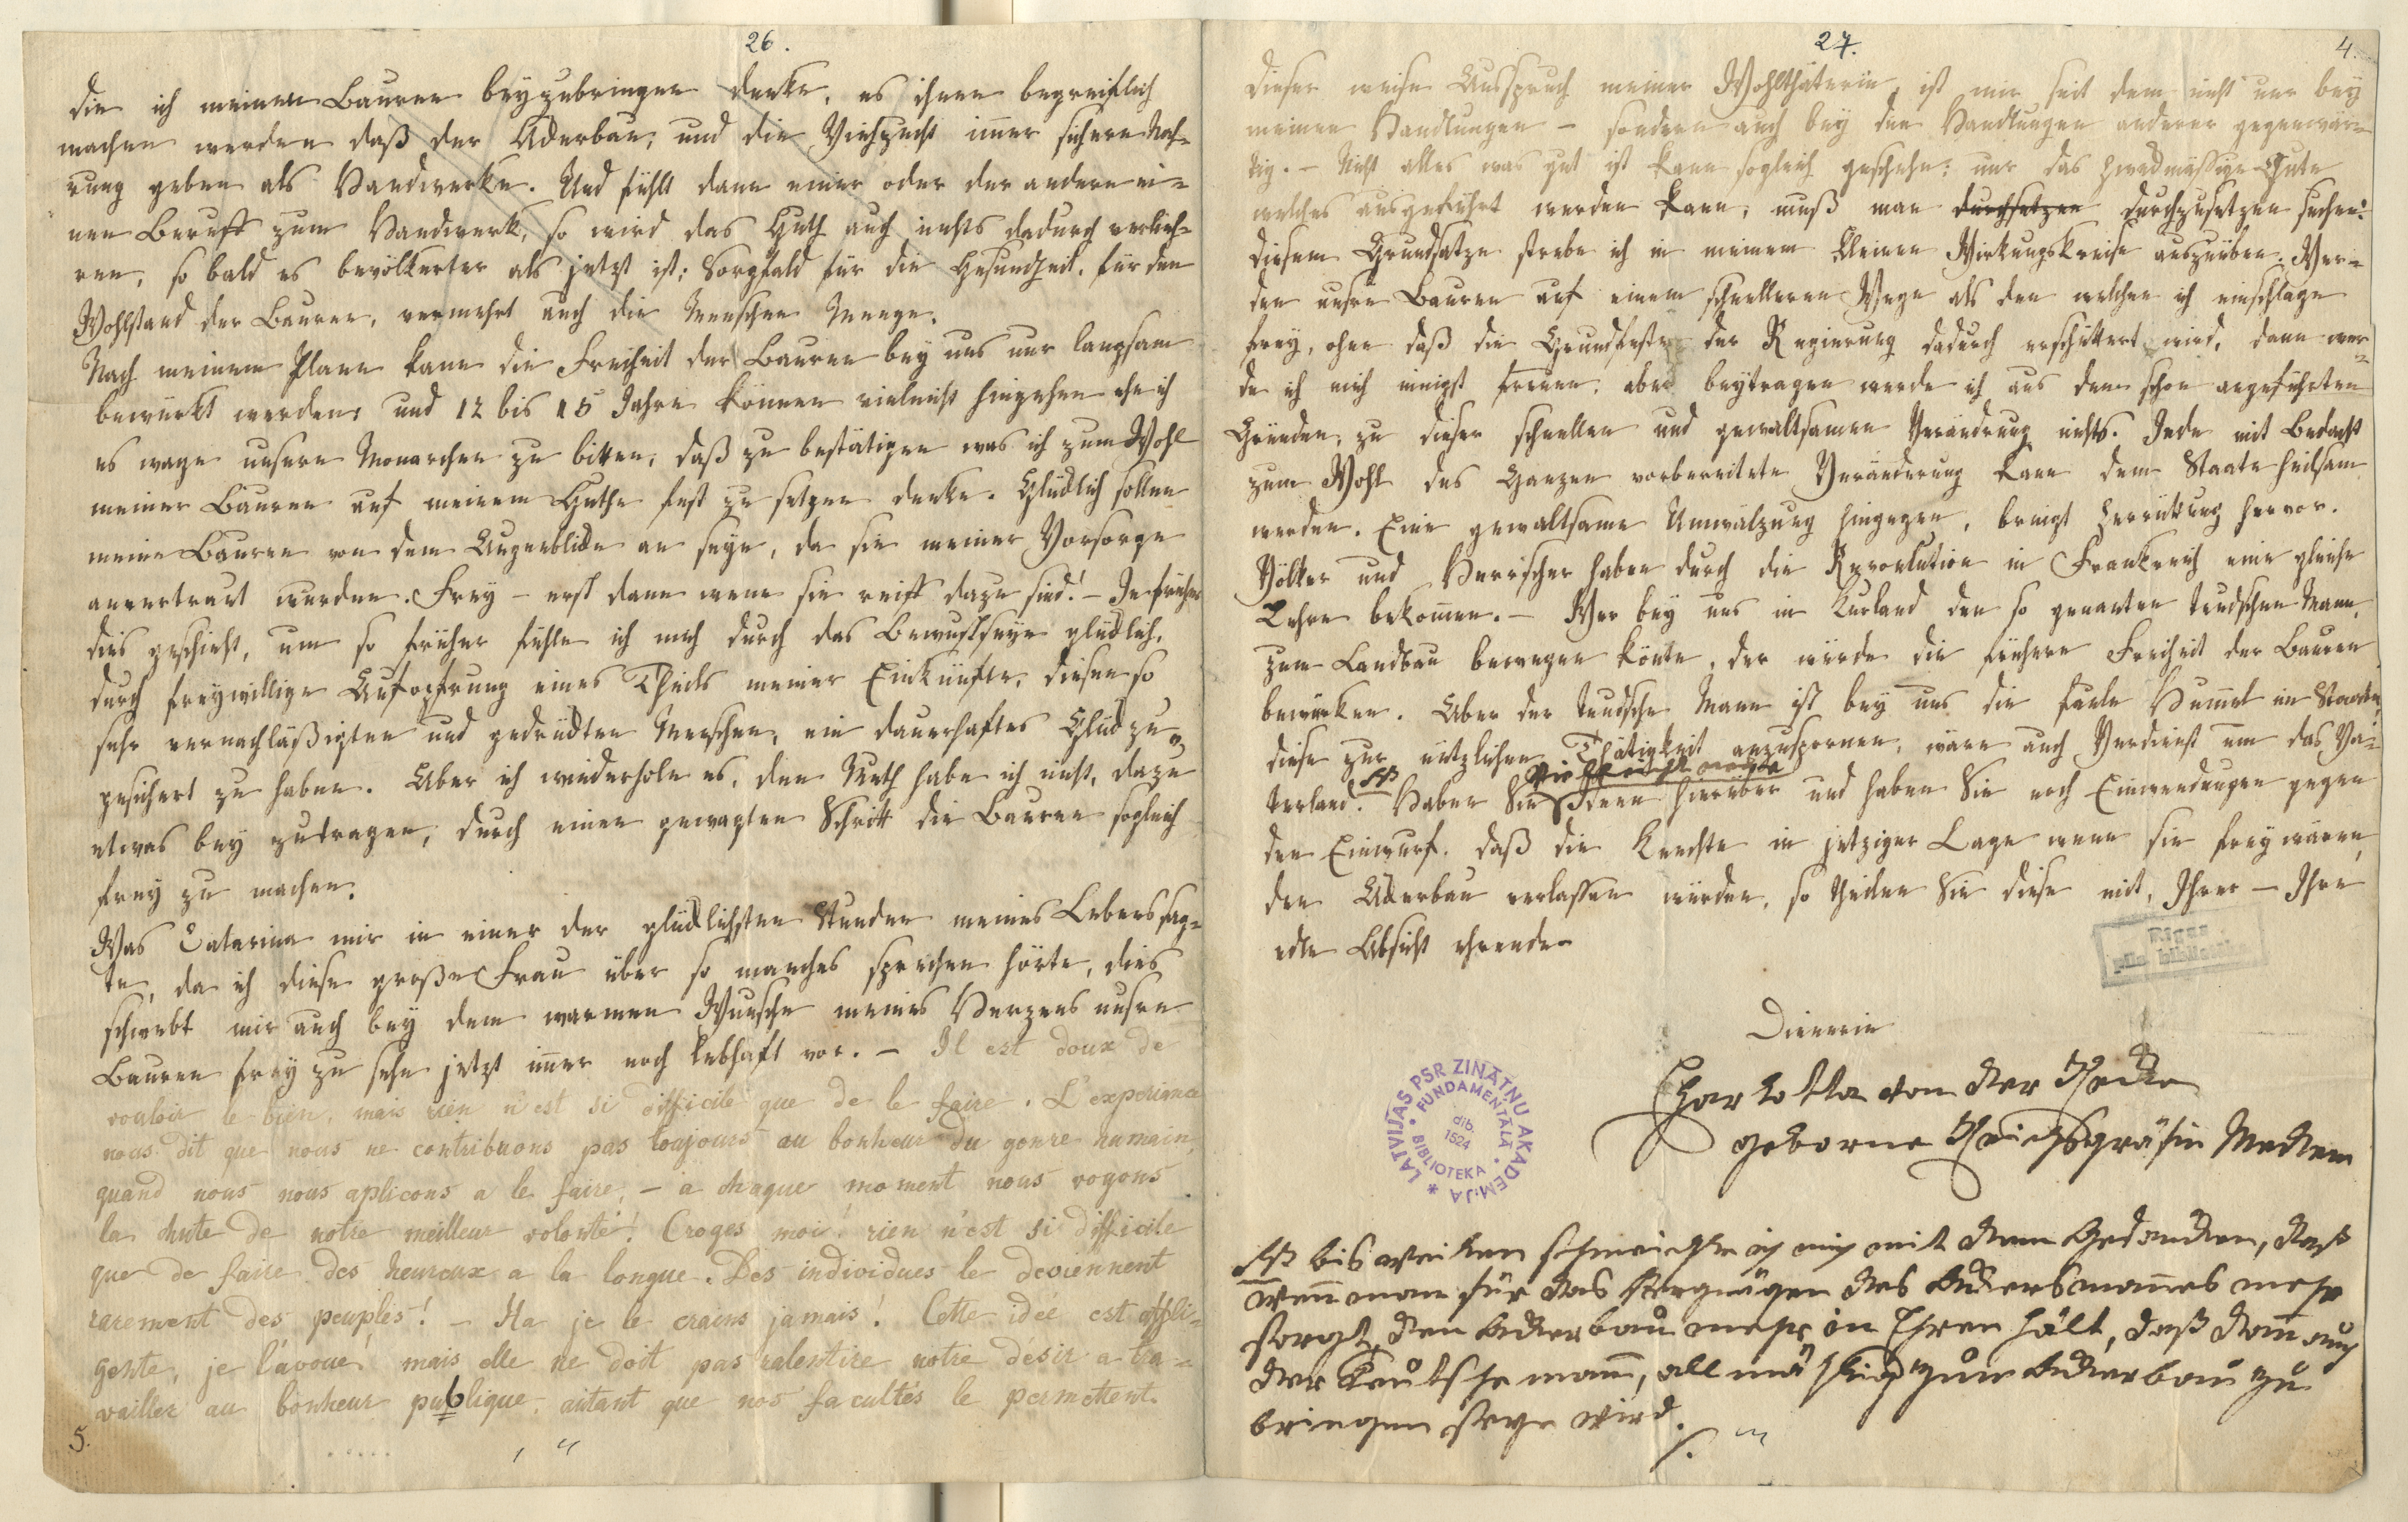 26.
die ich meinen Bauren beyzubringen denke, es ihnen begreiflich
machen werden daß der Ackerbau, und die Viehzucht im̄er sichere Nah-
rung geben als Handwerke. Und fühlt dann einer oder der andere ei-
nen Beruff zum Handwerk, so wird das Guth auch nichts dadurch verlieh-
ren, so bald es bevölkerter als jetzt ist; Sorgfald für die Gesundheit, für den
Wohlstand der Bauren, vermehrt auch die Menschen Menge.
Nach meinem Plane kann die Freiheit der Bauren bey uns nur langsam
bewürkt werden, und 12 bis 15 Jahre können vieleicht hingehen ehe ich
es wage unsern Monarchen zu bitten, daß zu bestätigen was ich zum Wohl
meiner Bauren auf meinem Guthe fest zu setzen denke. Glücklich sollen
meine Bauren von dem Augenblicke an seyn, da sie meiner Vorsorge
anvertraut wurden. Frey – erst dann wenn sie reiff dazu sind! – Je früher
dies geschieht, um so früher fühle ich mich durch das Bewustseyn glücklich,
durch freywillige Aufopfrung eines Theils meiner Einkünfte, diesen so
sehr vernachläßigten und gedrückten Menschen, ein dauerhaftes Glück zu-
gesichert zu haben. Aber ich wiederhole es, den Muth habe ich nicht, dazu
etwas bey zutragen, durch einen gewagten Schritt die Bauren sogleich
frey zu machen.
Was Catarina mir in einer der glücklichsten Stunden meines Lebens sag-
te, da ich diese große Frau über so manches sprechen hörte, dies
schwebt mir auch bey dem warmen Wunsche meines Herzens unsre
Bauren frey zu sehn jetzt im̄er noch lebhaft vor. – Il est doux de
vouloir le bien, mais rien n'est si difficile que de le faire. L'experiance
nous dit que nous ne contribuons pas toujours au bonheur du genre humain,
quand nous nous aplicons a le faire, – a chaque moment nous voyons
la chute de notre meilleur volonté! Croyes moi! rien n'est si difficile
que de faire des heureux a la longue. Des individues le deviennent
rarement des peuples! – Ha je le crains jamais! Cette idée est affli-
gente, je l'avoue mais elle ne doit pas ralentire notre desir a tra-
vailler au bonheur publique, autant que nos facultés le permettent.
5.
27.
4.
Dieser weise Ausspruch meiner Wohlthäterin, ist mir seit dem nicht nur bey
meinen Handlungen – sondern auch bey den Handlungen anderer gegenwär-
tig. – Nicht alles was gut ist kann sogleich geschehn: nur das zweckmässige Gute
welches ausgeführt werden kann, muß man durchsetzen durchzusetzen suchen!
diesem Grundsatze strebe ich in meinem kleinen Wirkungskreise auszuüben. Wer-
den unsre Bauren auf einem schnelleren Wege als den welchen ich einschlage
frey, ohne daß die Grundfeste der Regierung dadurch erschüttert wird, dann wer-
de ich mich innigst freuen: aber beytragen werde ich aus den schon angeführten
Gründen, zu dieser schnellen und gewaltsamen Verändrung nichts. Jede mit Bedacht
zum Wohl des Ganzen vorbereitete Veränderung kann dem Staate heilsam
werden. Eine gewaltsame Umwälzung hingegen, bringt Zerrüttung hervor.
Völker und Herrscher haben durch die Revolution in Frankreich eine gleiche
Lehre bekom̄en. – Wer bey uns in Kurland den so genanten teudschen Mann,
zum Landbau bewegen könte, der würde die frühere Freiheit der Bauren
bewürken. Aber der teudsche Mann ist bey uns die faule Hum̄el im Staate,
diese zur nützlichen Thätigkeit anzuspornen, wäre auch Verdienst um das Va-
terland. Haben Sie Ideen hierüber und haben Sie noch Einwendungen gegen
den Einwurf, daß die Knechte in jetziger Lage wenn sie frey wären,
den Ackerbau verlassen würden, so theilen Sie diese mit, Ihrer – Ihre
edle Absicht ehrenden
Dienerin
Charlotta von der Recke
geborne Reichsgräfin Medem
bisweilen schmeichle ich mich mit dem Gedancken, daß
wen̄ man für das Vergnügen des Ackersman̄es mehr
sorgt, den Ackerbau mehr in Ehren hält, daß dan̄ auch
der teutsche man̄, allmählich zum Ackerbau zu
bringen seyn wird.
LATVIJAS PSR ZINĀTŅU AKADEMIJA
FUNDAMENTĀLĀ BIBLIOTEKA
dib. 1524
Rīgas
pils. bibliotēka